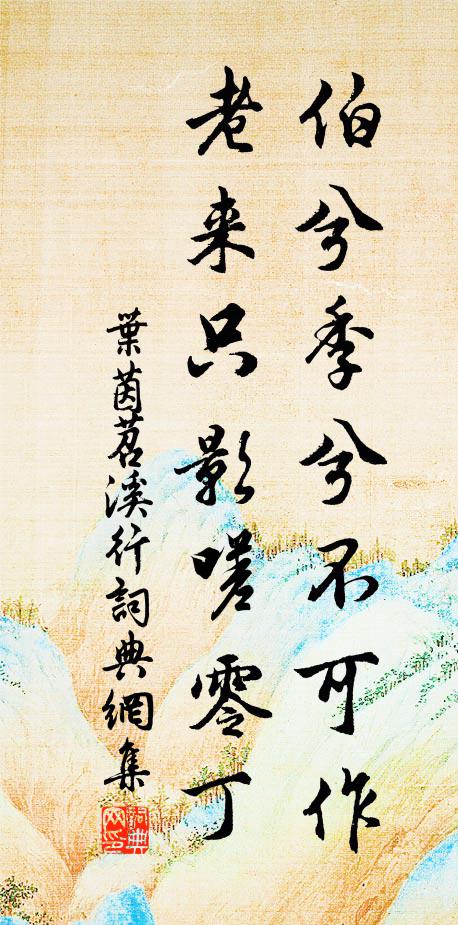 伯兮季兮不可作
老来只影嗟零丁
葉茵苕溪行詞典網集
詞典網印